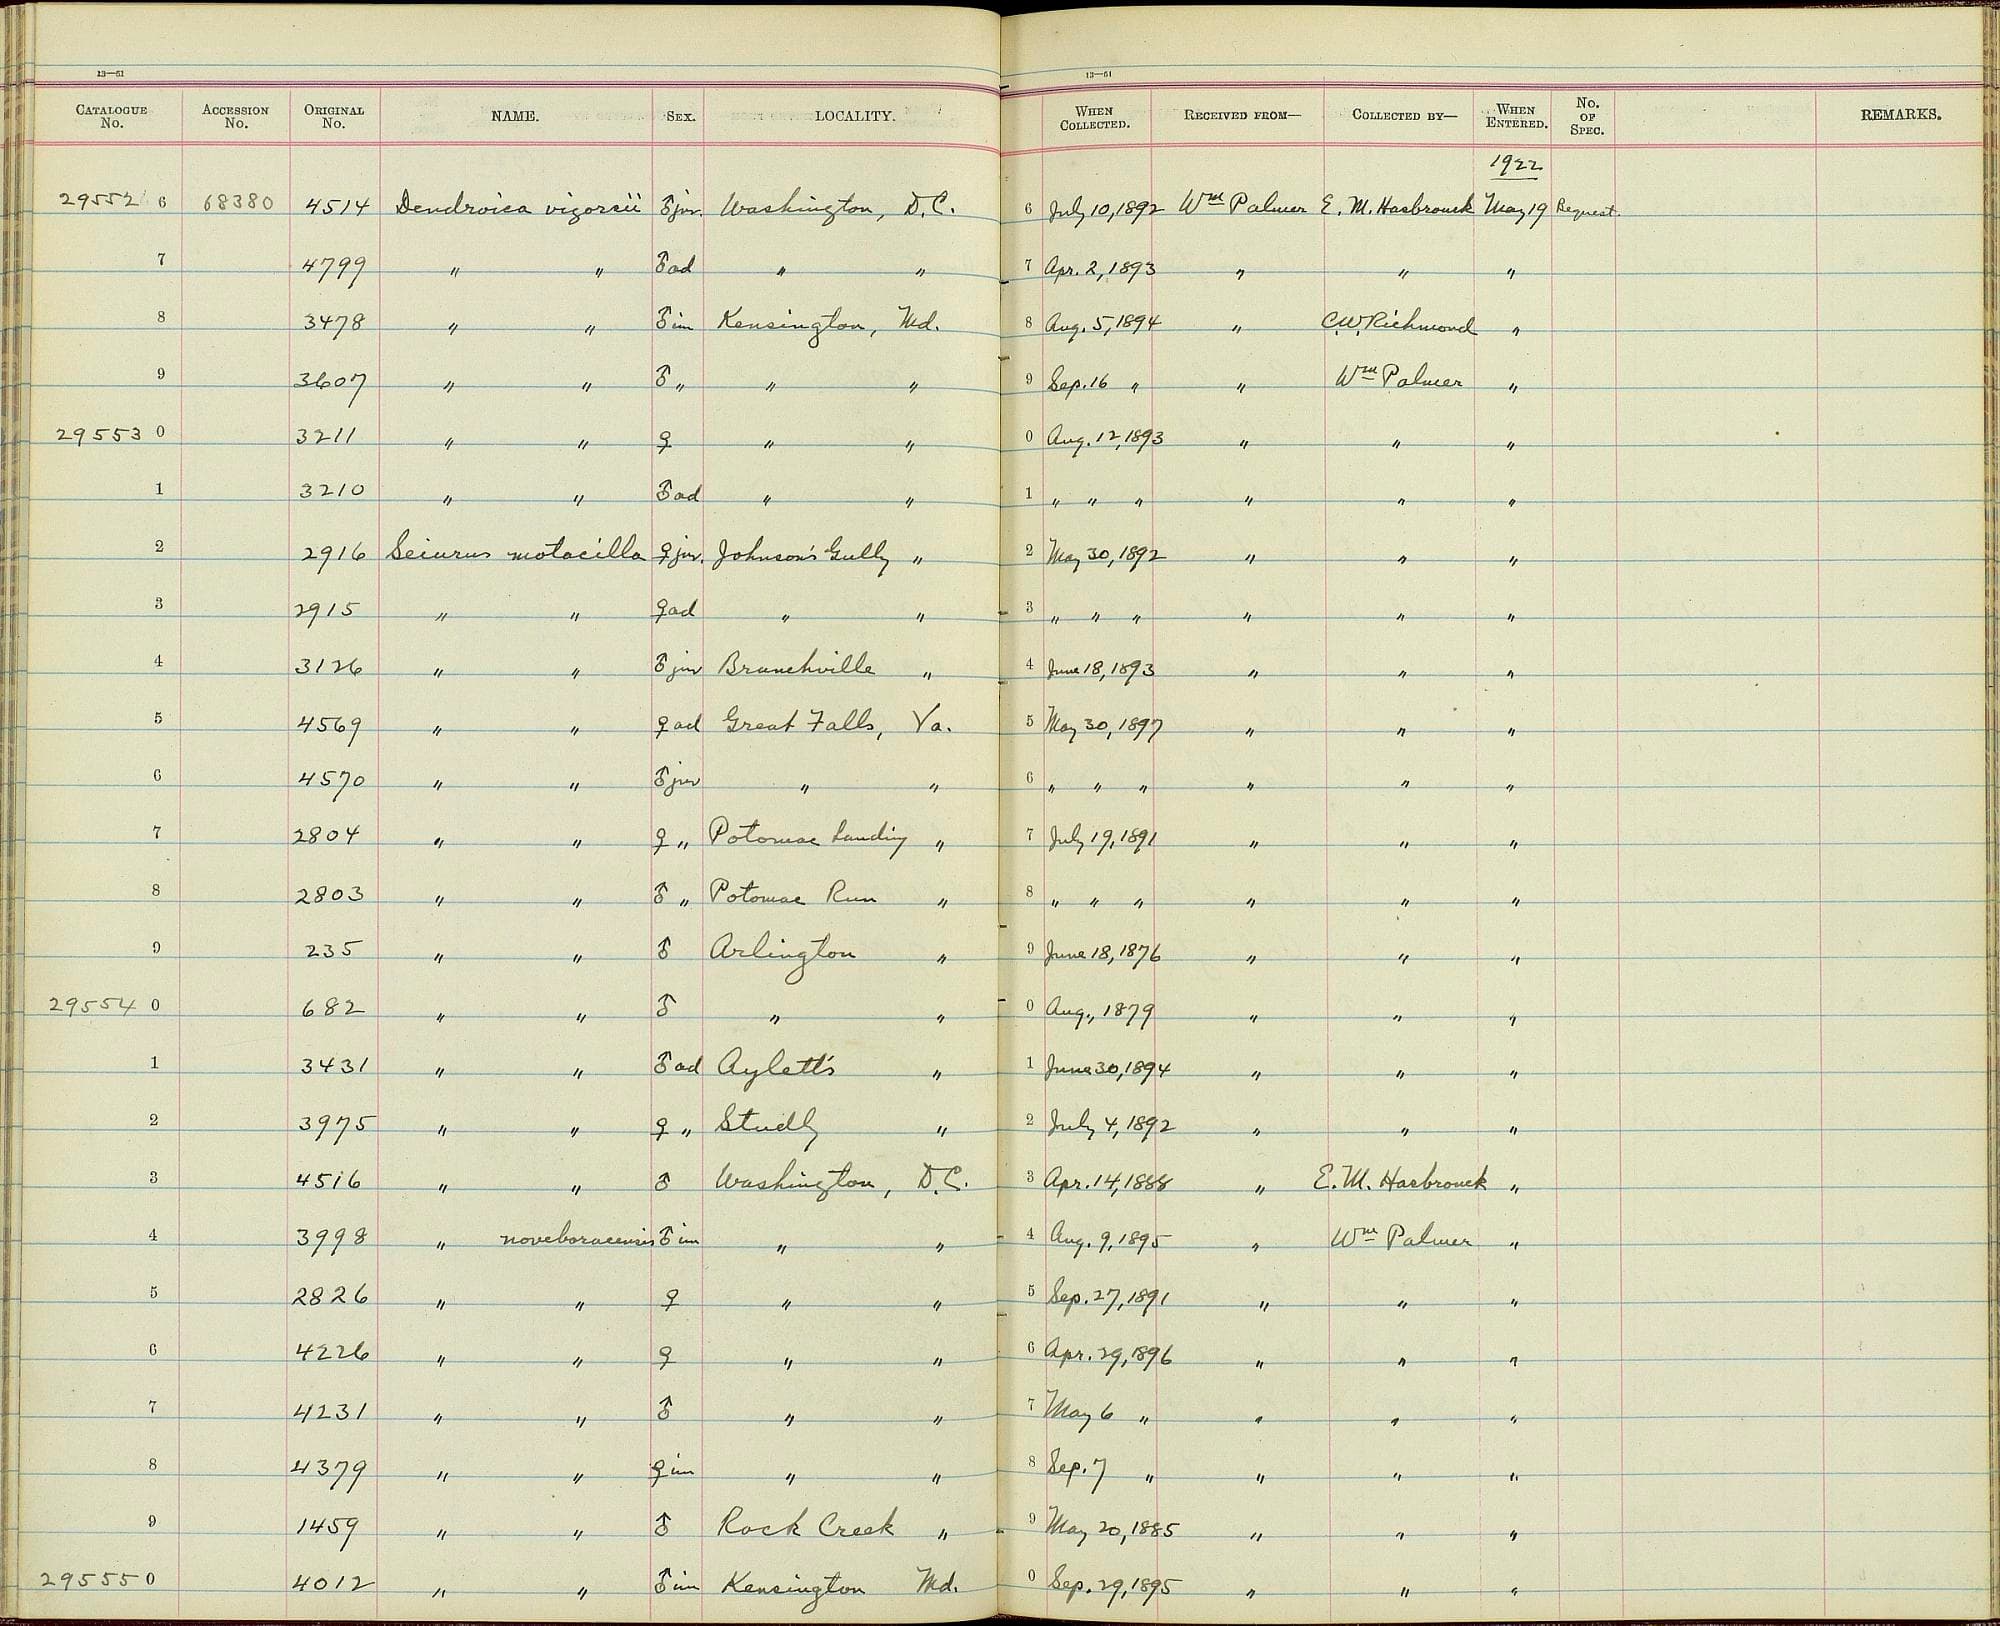 13—61 13—61
CATALOGUE No. ACCESSION No. ORIGINAL No. NAME. SEX. LOCALITY. WHEN COLLECTED. RECEIVED FROM— COLLECTED BY— WHEN ENTERED. No. OF SPEC. REMARKS.
1922
29552 6 68380 4514 Dendroica vigorsii ♂ juv. Washington, D.C. 6 July 10, 1892 Wm Palmer E. M. Hasbrouck May 19 Bequest.
7 4799 " " ♂ ad " " 7 Apr. 2, 1893 " " "
8 3478 " " ♂ im Kensington, Md. 8 Aug. 5, 1894 " C.W. Richmond "
9 3607 " " ♂ " " " 9 Sep. 16 " " Wm Palmer "
29553 0 3211 " " ♀ " " 0 Aug. 12, 1893 " " "
1 3210 " " ♂ ad " " 1 " " " " " "
2 2916 Seiurus motacilla ♀ juv. Johnson's Gully " 2 May 30, 1892 " " "
3 2915 " " ♀ ad " " 3 " " " " " "
4 3126 " " ♂ juv Branchville " 4 June 18, 1893 " " "
5 4569 " " ♀ ad Great Falls, Va. 5 May 30, 1897 " " "
6 4570 " " ♂ juv " " 6 " " " " " "
7 2804 " " ♀ " Potomac Landing " 7 July 19, 1891 " " "
8 2803 " " ♂ " Potomac Run " 8 " " " " " "
9 235 " " ♂ Arlington " 9 June 18, 1876 " " "
29554 0 682 " " ♂ " " 0 Aug., 1879 " " "
1 3431 " " ♂ ad Aylett's " 1 June 30, 1894 " " "
2 3975 " " ♀ " Studly " 2 July 4, 1892 " " "
3 4516 " " ♂ Washington, D.C. 3 Apr. 14, 1888 " E. M. Hasbrouck "
4 3998 " noveboracensis ♂ im " " 4 Aug. 9, 1895 " Wm Palmer "
5 2826 " " ♀ " " 5 Sep. 27, 1891 " " "
6 4226 " " ♀ " " 6 Apr. 29, 1896 " " "
7 4231 " " ♂ " " 7 May 6 " " " "
8 4379 " " ♀ im " " 8 Sep. 7 " " " "
9 1459 " " ♂ Rock Creek " 9 May 20, 1885 " " "
29555 0 4012 " " ♂ im Kensington Md. 0 Sep. 29, 1895 " " "